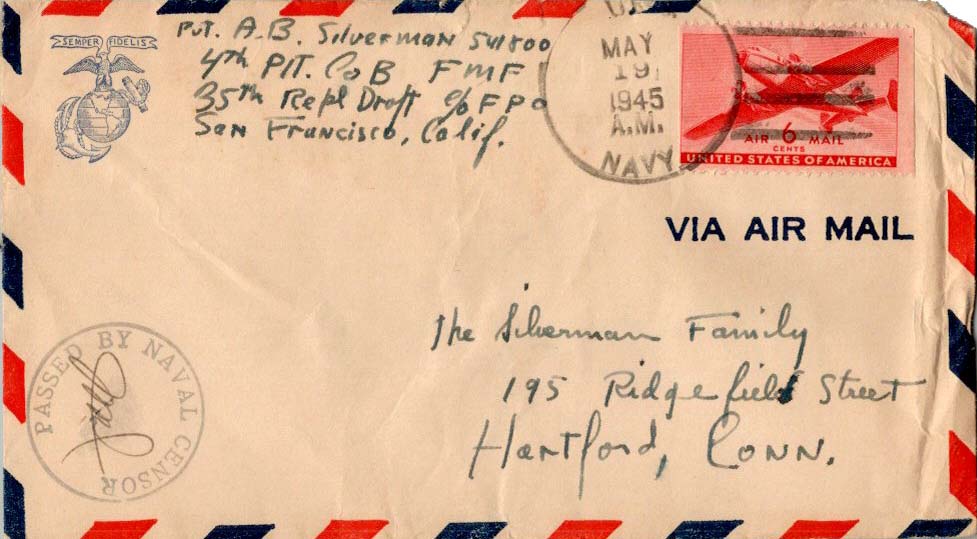 SEMPER FIDELIS
Pvt. A.B. Silverman 541800
4th Plt. Co B FMF
35th Repl Draft c/o FPO
San Francisco, Calif.
U.S.
MAY
19
1945
A.M.
NAVY
AIR 6 MAIL
CENTS
UNITED STATES OF AMERICA
VIA AIR MAIL
The Silverman Family
195 Ridgefield Street
Hartford, Conn.
PASSED BY NAVAL CENSOR